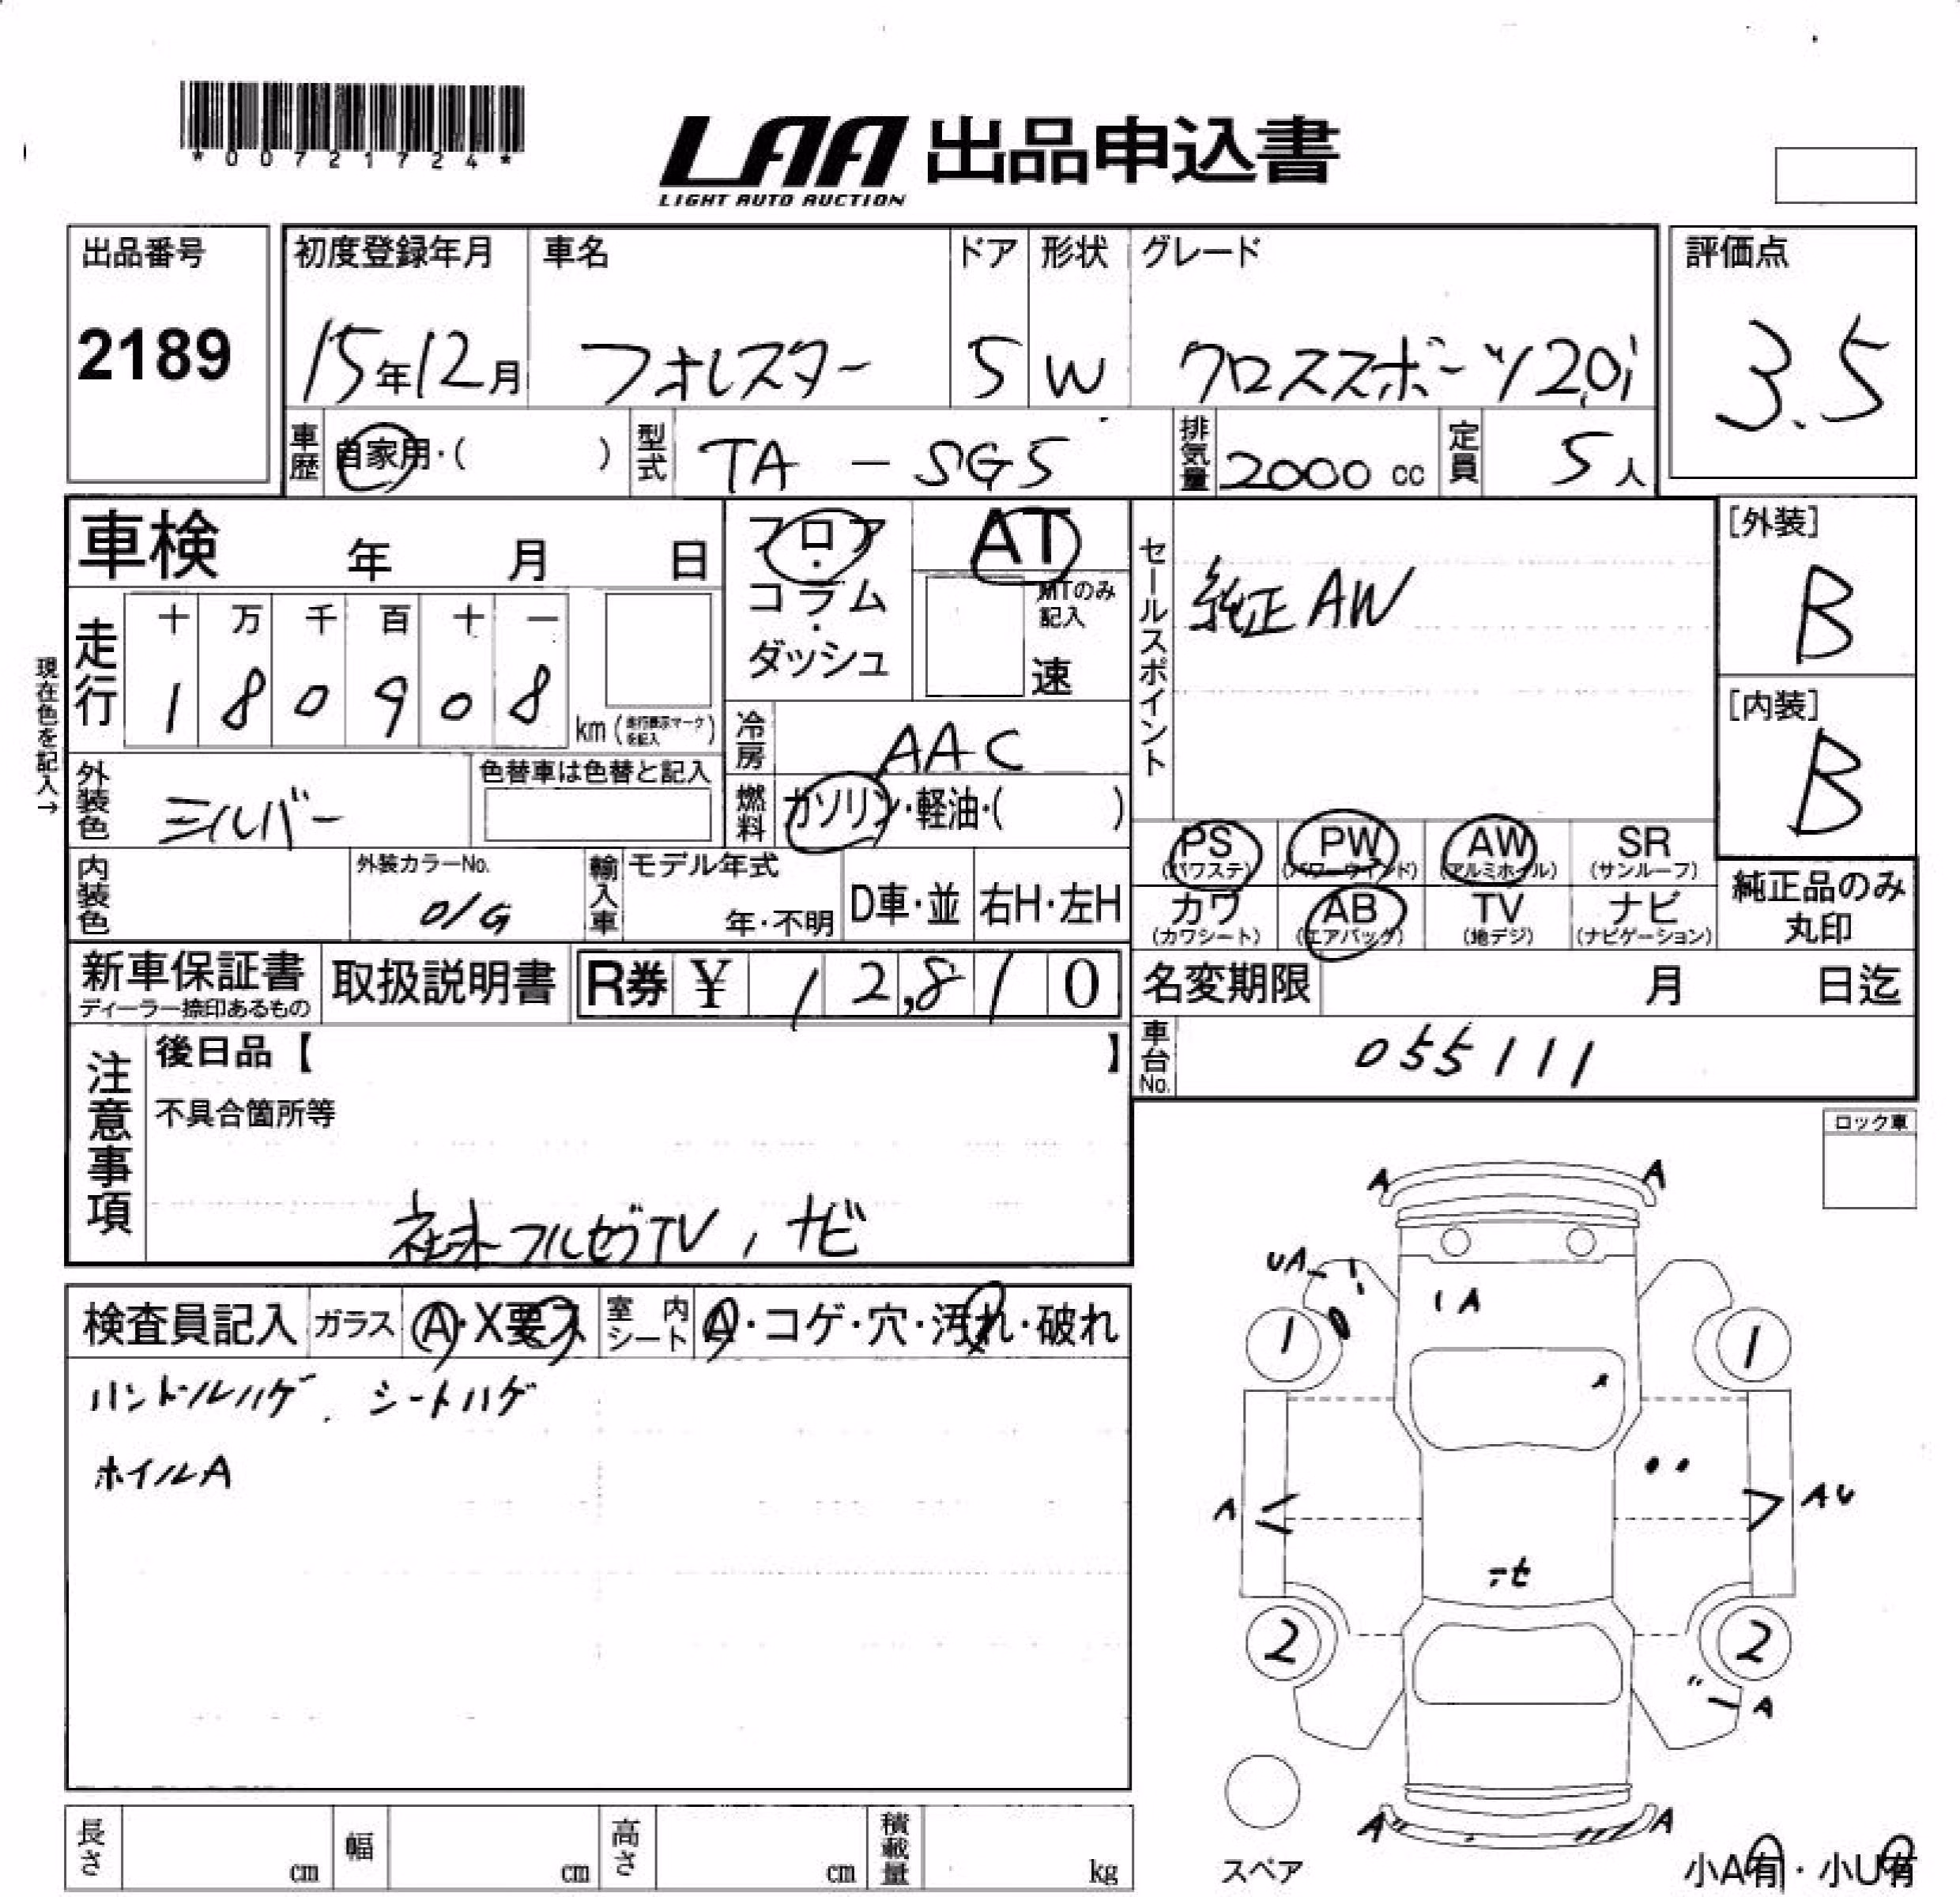 *00721724*
LAA 出品申込書
LIGHT AUTO AUCTION
出品番号 初度登録年月 車名 ドア 形状 グレード 評価点
2189 15年12月 フォレスター 5 W クロススポーツ2.0i 3.5
車歴 自家用・( ) 型式 TA-SG5 排気量 2000cc 定員 5人
車検 年 月 日 フロア・コラム・ダッシュ AT
MTのみ記入
速
セールスポイント
純正AW
[外装]
B
[内装]
B
現在色を記入→
走行 十 万 千 百 十 一
1 8 0 9 0 8 km (走行表示マークを記入)
冷房 AAC
外装色 シルバー 色替車は色替と記入
燃料 ガソリン・軽油・( )
PS AW PW SR
(パワステ) (パワーウインド) (アルミホイル) (サンルーフ)
カワ AB TV ナビ
(カワシート) (エアバッグ) (地デジ) (ナビゲーション)
純正品のみ丸印
内装色 外装カラーNo. 01G 輸入車 モデル年式 年・不明 D車・並 右H・左H
新車保証書 取扱説明書 R券 ¥ 12,810 名変期限 月 日迄
ディーラー捺印あるもの
車台No. 055111
注意事項 後日品【 】
不具合箇所等
社外フルセグTV, ナビ
ロック車
検査員記入 ガラス A・X要ス 室内シート A・コゲ・穴・汚れ・破れ
ハンドルハゲ、シートハゲ
ホイルA
A A
UA
1 A
1 1
A AU
2 2
A
A A
スペア
小A有・小U有
長さ cm 幅 cm 高さ cm 積載量 kg